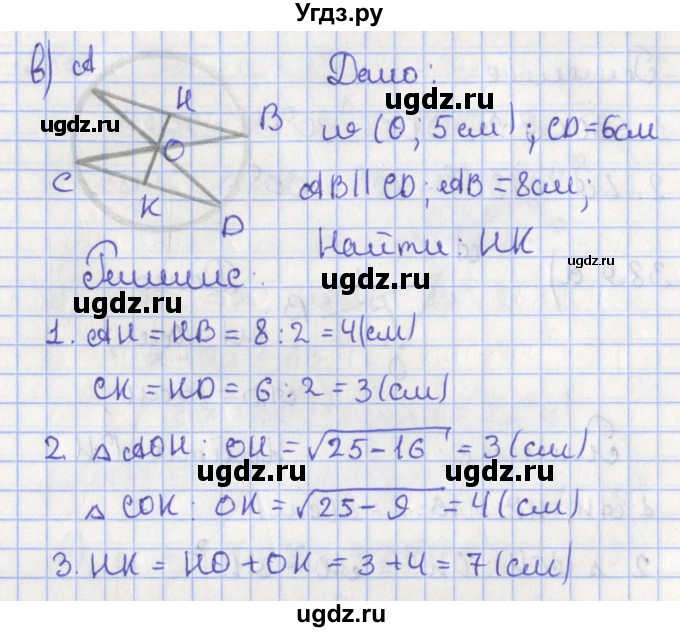 Угдз.ру
в) A
H
B
O
C
K
D
Дано:
ugdz.ru
ugdz.ru
w (O; 5см); CD=6см
AB || CD; AB = 8см;
Найти: HK
ugdz.ru
Решение:
ugdz.ru
ugdz.ru
1. AH = HB = 8 : 2 = 4(см)
CK = KD = 6 : 2 = 3(см)
2. △ AOH: OH = √25-16 = 3(см)
ugdz.ru
△ COK: OK = √25-9 = 4(см)
ugdz.ru
3. HK = HO + OK = 3+4 = 7(см)
ugdz.ru
ugdz.ru